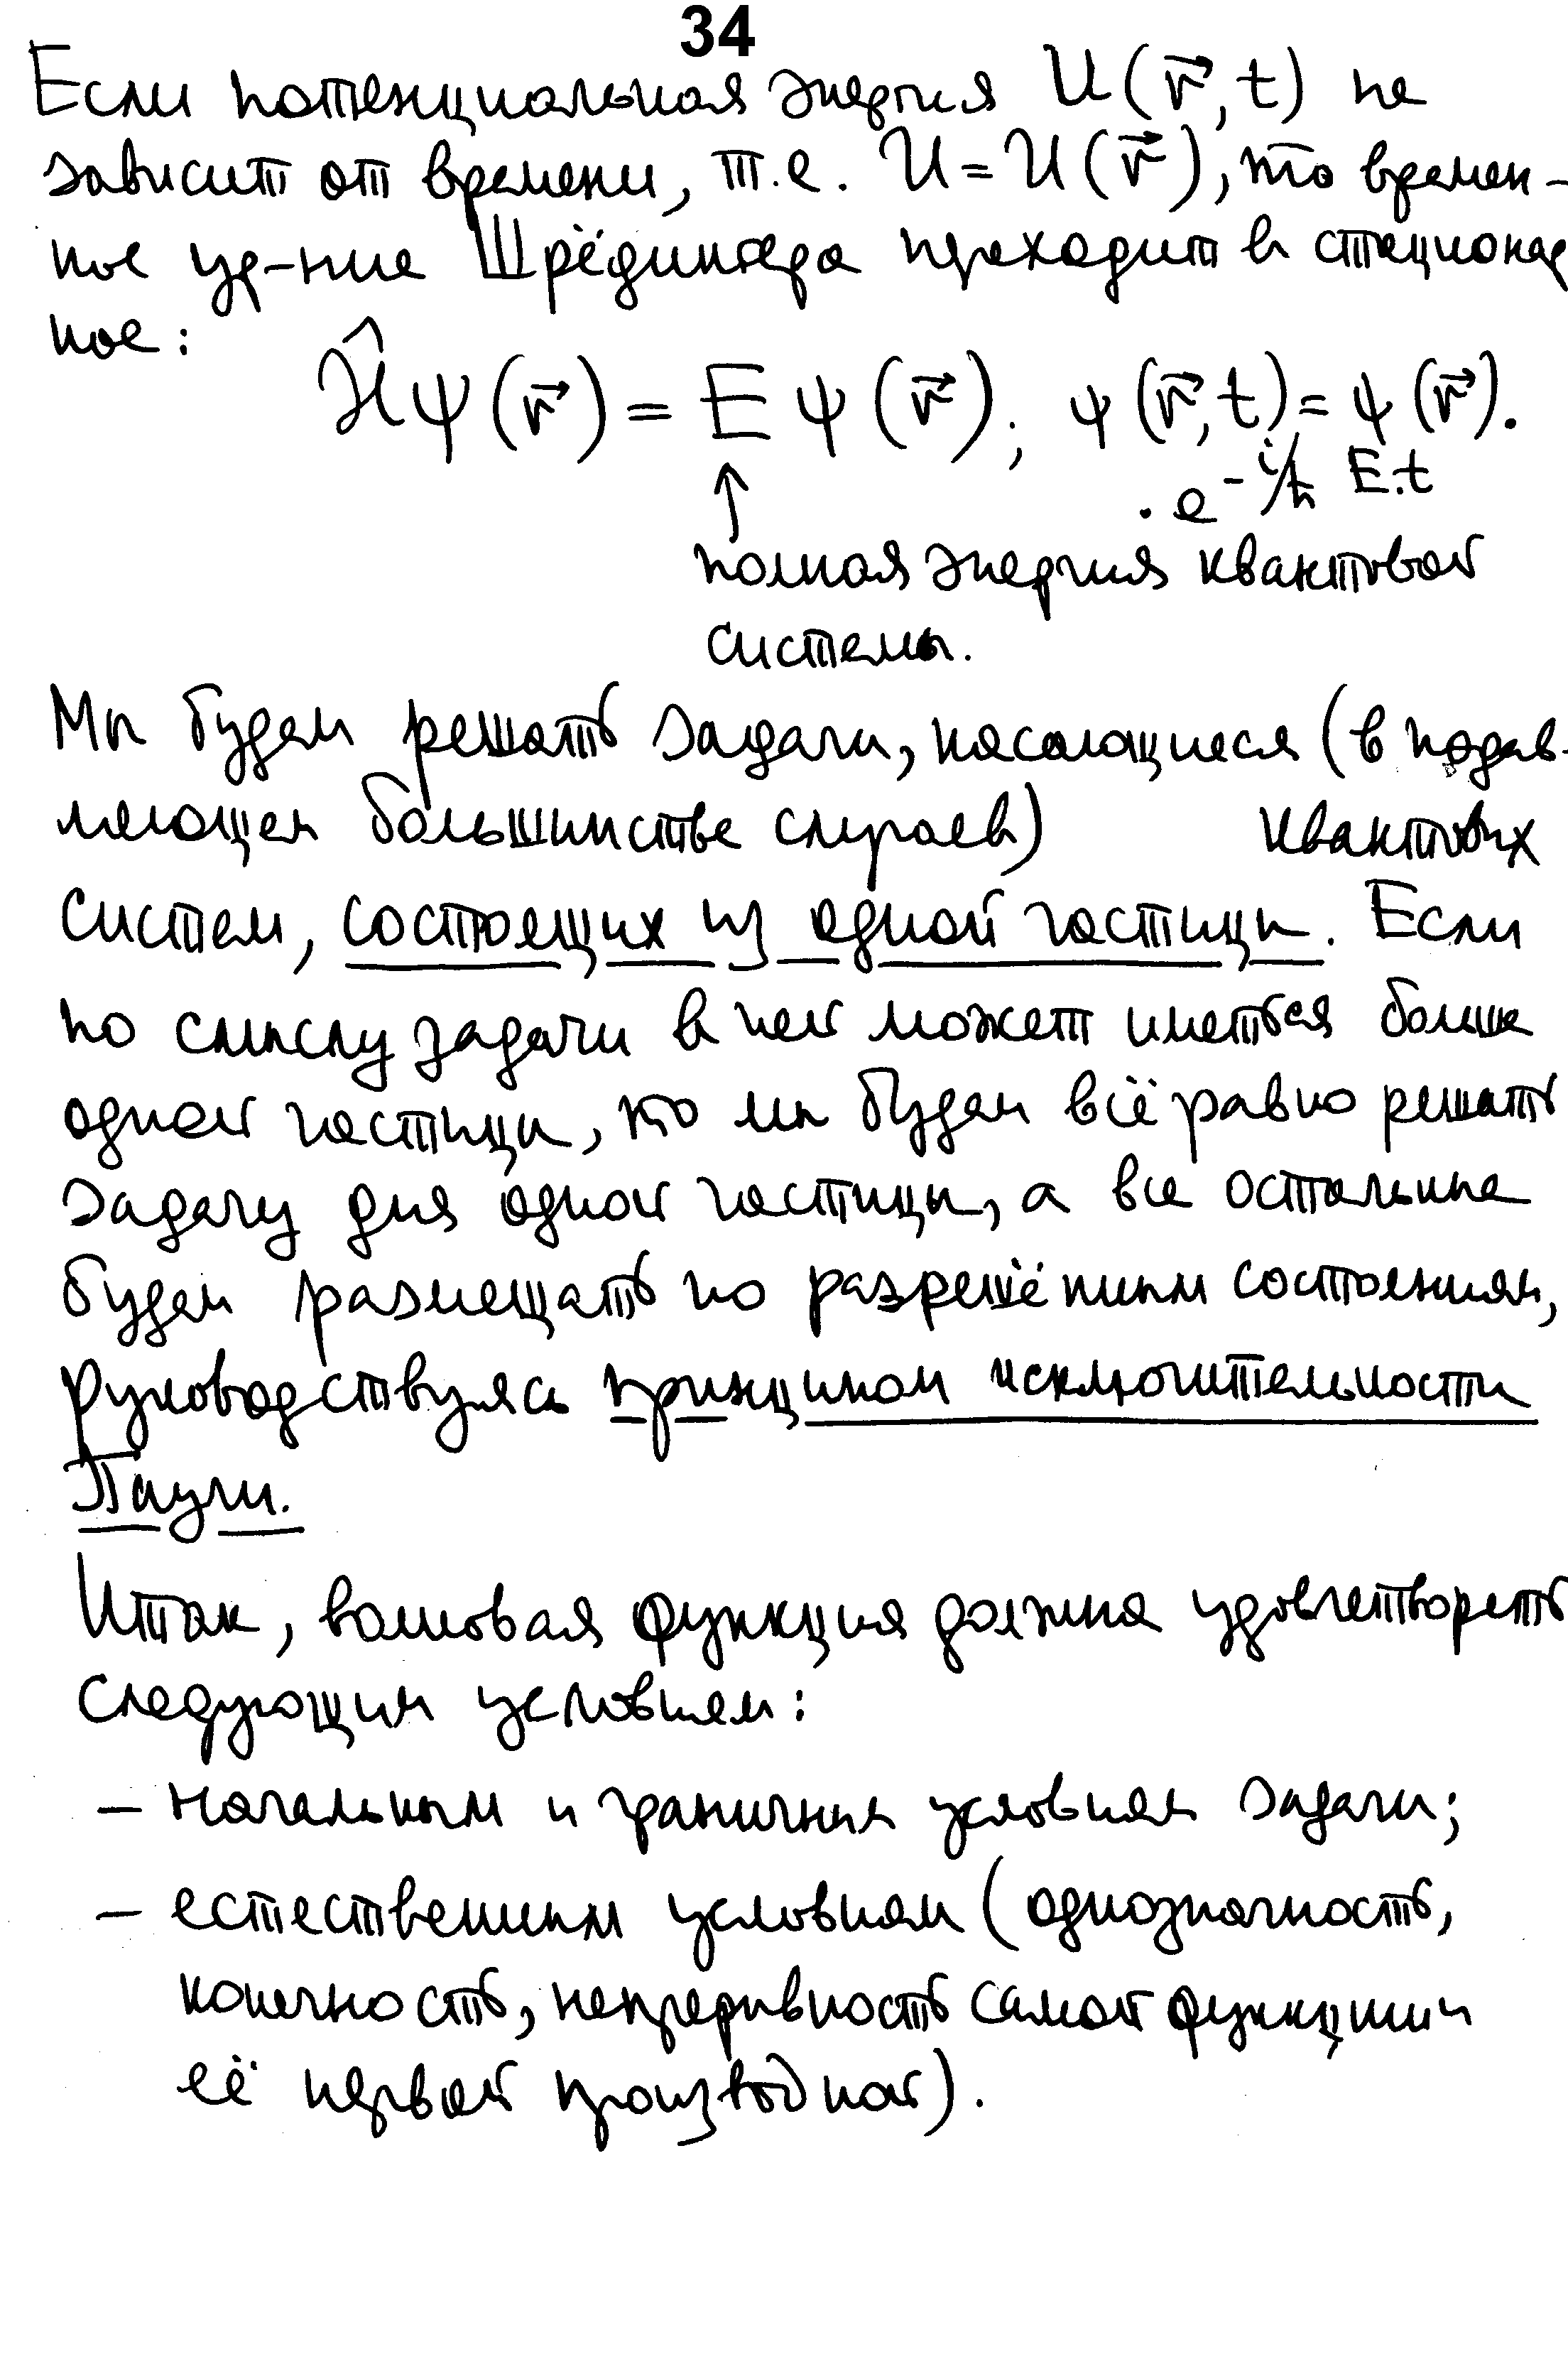 34
Если потенциальная энергия U(r⃗, t) не
зависит от времени, т.е. U = U(r⃗), то времен-
ное ур-ние Шрёдингера переходит в стационар
ное:
Ĥψ(r⃗) = Eψ(r⃗); ψ(r⃗, t) = ψ(r⃗)·
· e^{-i/ħ E·t}
↑
полная энергия квантовой
системы.
Мы будем решать задачи, касающиеся (в подав-
ляющем большинстве случаев) квантовых
систем, состоящих из одной частицы. Если
по смыслу задачи в ней может иметься больше
одной частицы, то мы будем всё равно решать
задачу для одной частицы, а все остальные
будем размещать по разрешённым состояниям,
руководствуясь принципом исключительности
Паули.
Итак, волновая функция должна удовлетворять
следующим условиям:
– начальным и граничным условиям задачи;
– естественным условиям (однозначность,
конечность, непрерывность самой функции и
её первой производной).